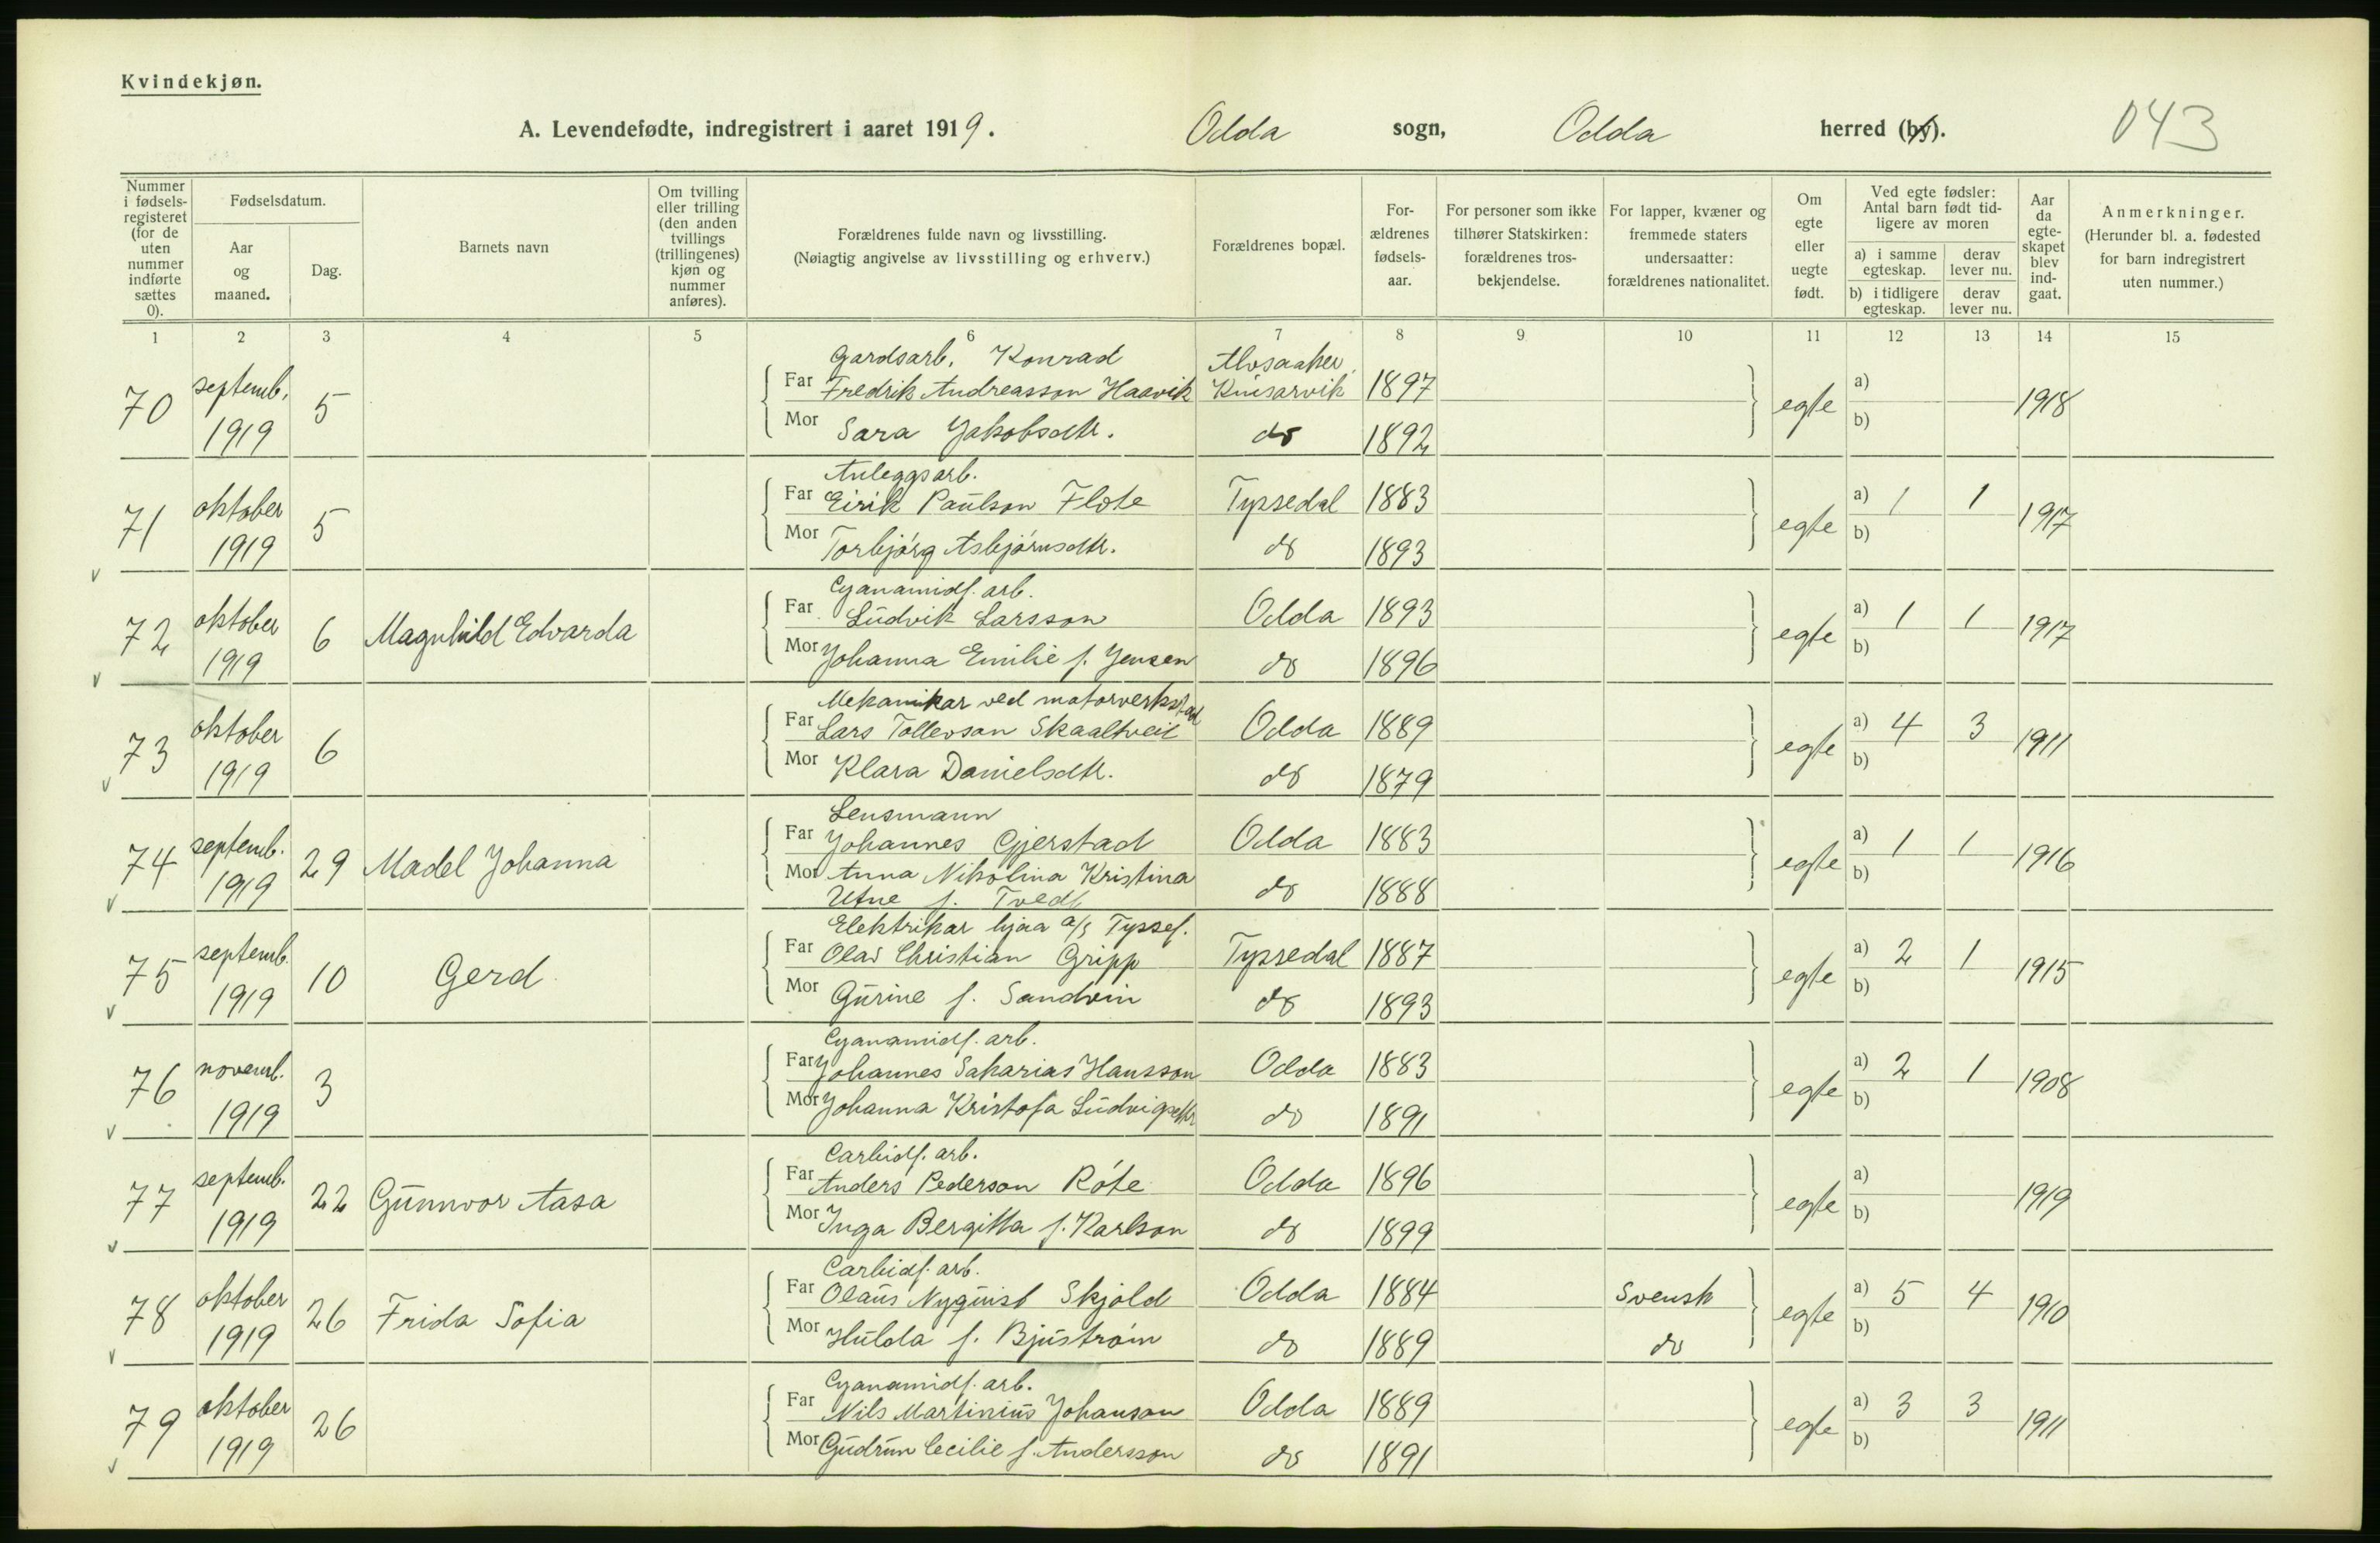 Kvindekjøn.
A. Levendefødte, indregistrert i aaret 1919. Odda sogn, Odda herred (by). 043
Nummer i fødselsregisteret (for de uten nummer indførte sættes 0).
Fødselsdatum.
Aar og maaned.
Dag.
Barnets navn
Om tvilling eller trilling (den anden tvillings (trillingenes) kjøn og nummer anføres).
Forældrenes fulde navn og livsstilling.
(Nøiagtig angivelse av livsstilling og erhverv.)
Forældrenes bopæl.
Forældrenes fødselsaar.
For personer som ikke tilhører Statskirken: forældrenes trosbekjendelse.
For lapper, kvæner og fremmede staters undersaatter: forældrenes nationalitet.
Om egte eller uegte født.
Ved egte fødsler: Antal barn født tidligere av moren
a) i samme egteskap. derav lever nu.
b) i tidligere egteskap. derav lever nu.
Aar da egteskapet blev indgaat.
Anmerkninger.
(Herunder bl. a. fødested for barn indregistrert uten nummer.)
1 2 3 4 5 6 7 8 9 10 11 12 13 14 15
Gardsarb. Konrad Alvsaaker,
70 septemb. 1919 5 Far Fredrik Andreasson Haavik Kinsarvik 1897 egte a) b) 1918
Mor Sara Jakobsdtr. do 1892
Anleggsarb.
71 oktober 1919 5 Far Eirik Paulson Flote Tyssedal 1883 egte a) 1 1 b) 1917
Mor Torbjørg Asbjørnsdtr. do 1893
v
Cyanamidf. arb.
72 oktober 1919 6 Magnhild Edvarda Far Ludvik Larsson Odda 1893 egte a) 1 1 b) 1917
Mor Johanna Emilie f. Jensen do 1896
v
Mekanikar ved motorverkstad
73 oktober 1919 6 Far Lars Tollevson Skaaltveit Odda 1889 egte a) 4 3 b) 1911
Mor Klara Danielsdtr. do 1879
v
Lensmann
74 septemb. 1919 29 Madel Johanna Far Johannes Gjerstad Odda 1883 egte a) 1 1 b) 1916
Mor Anna Nikolina Kristina do 1888
Utne f. Tvedt
v
Elektrikar hjaa a/s Tyssef.
75 septemb. 1919 10 Gerd Far Olav Christian Gripp Tyssedal 1887 egte a) 2 1 b) 1915
Mor Gurine f. Sandvin do 1893
v
Cyanamidf. arb.
76 novemb. 1919 3 Far Johannes Sakarias Hansson Odda 1883 egte a) 2 1 b) 1908
Mor Johanna Kristofa Ludvigsdtr do 1891
v
Carbidf. arb.
77 septemb. 1919 22 Gunnvor Aasa Far Anders Pederson Róte Odda 1896 egte a) b) 1919
Mor Inga Bergitta f. Karlson do 1899
v
Carbidf. arb.
78 oktober 1919 26 Frida Sofia Far Olaus Nyquist Skjold Odda 1884 Svensk egte a) 5 4 b) 1910
Mor Hulda f. Bjuström do 1889 do
v
Cyanamidf. arb.
79 oktober 1919 26 Far Nils Martinius Johanson Odda 1889 egte a) 3 3 b) 1911
Mor Gudrun Cecilie f. Andersson do 1891
v